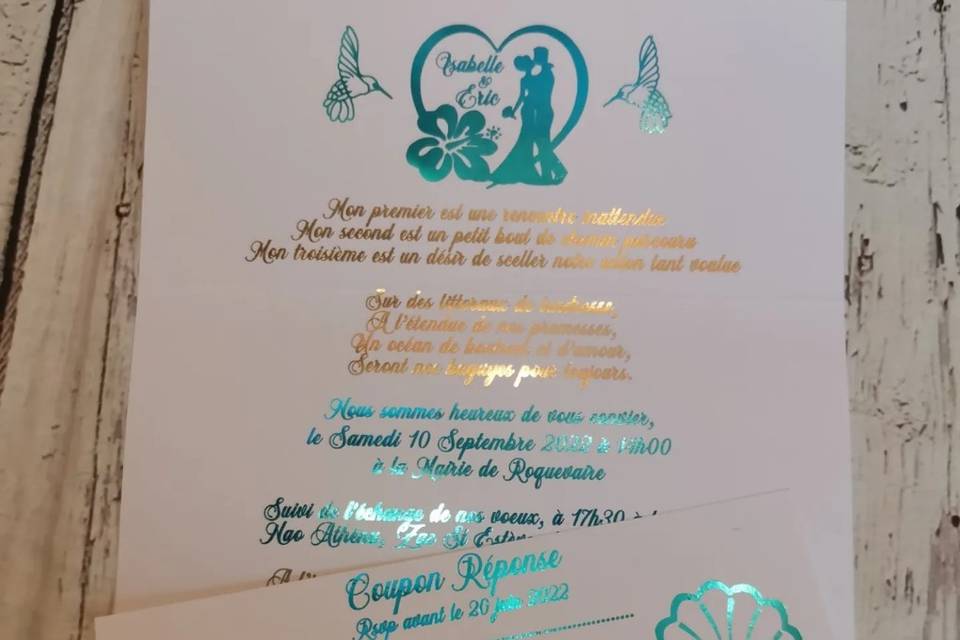 Isabelle
&
Eric
Mon premier est une rencontre inattendue
Mon second est un petit bout de chemin parcouru
Mon troisième est un désir de sceller notre union tant voulue
Sur des litteraux de tendresse,
A l'étendue de nos promesses,
Un océan de bonheur et d'amour,
Seront nos bagages pour toujours.
Nous sommes heureux de vous convier,
le Samedi 10 Septembre 2022 à 14h00
à la Mairie de Roquevaire
Suivi de l'échange de nos voeux, à 17h30
Nao Zac St Estève
Coupon Réponse
Rsvp avant le 20 juin 2022